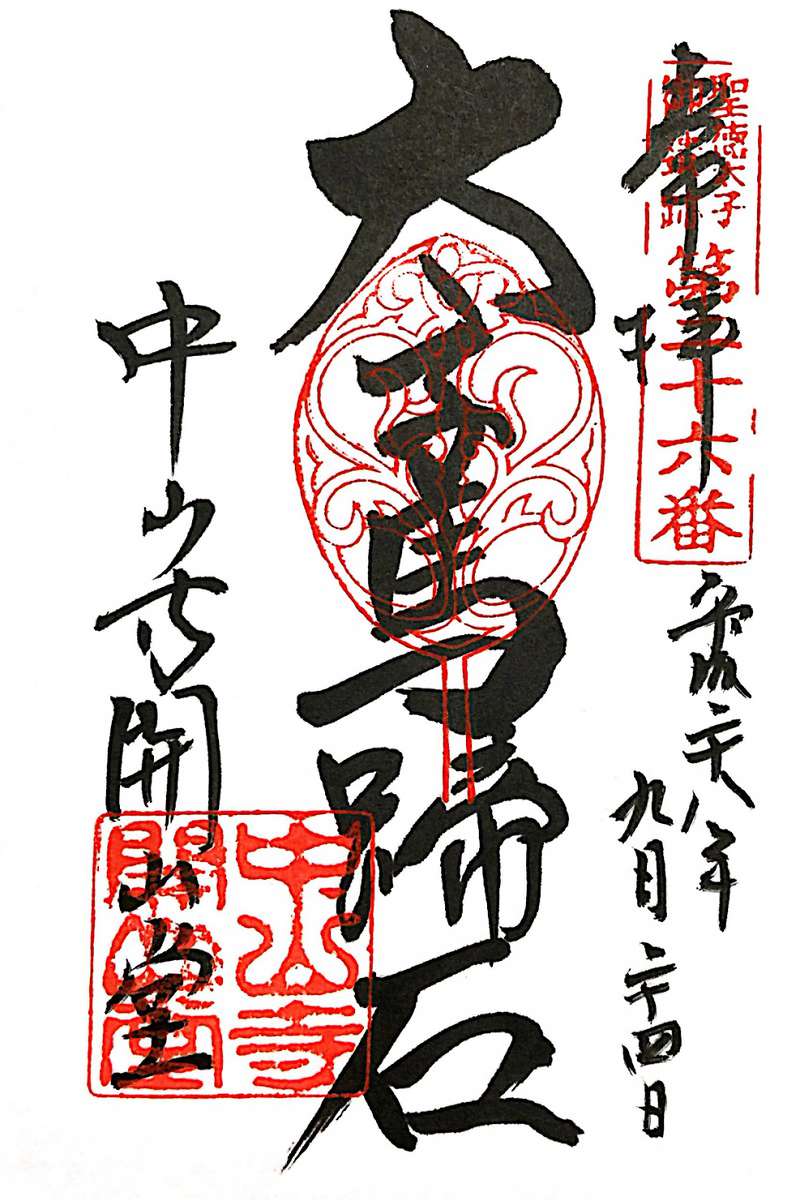 聖徳太子
御遺跡
第二十六番
奉拝
平成二十八年
九月二十四日
太子馬蹄石
中山寺開山堂
中山寺
開山堂